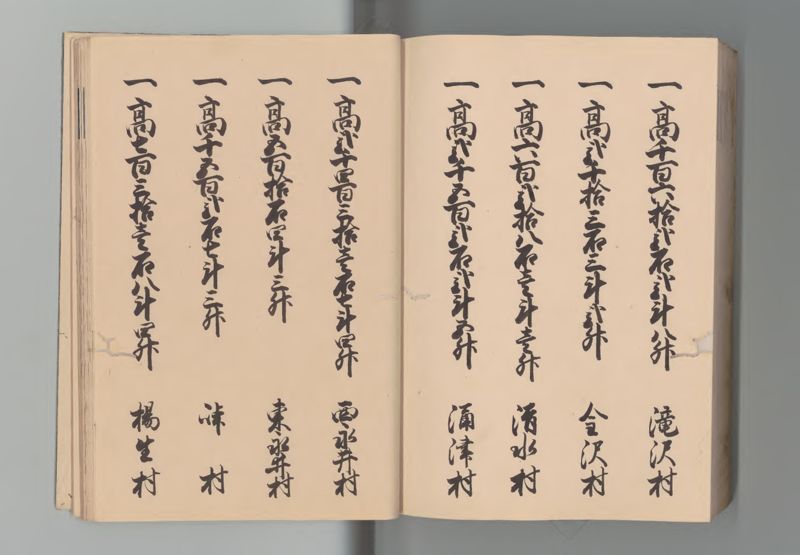 一高千百六拾弐石弐斗八升 滝沢村
一高弐千拾三石三斗弐升 金沢村
一高六百弐拾八石壱斗壱升 清水村
一高弐千五百弐石弐斗五升 涌津村
一高弐千四百三拾壱石七斗四升 西永井村
一高五百拾石四斗三升 東永井村
一高千五百弐石七斗三升 峠村
一高七百三拾壱石八斗四升 楊生村